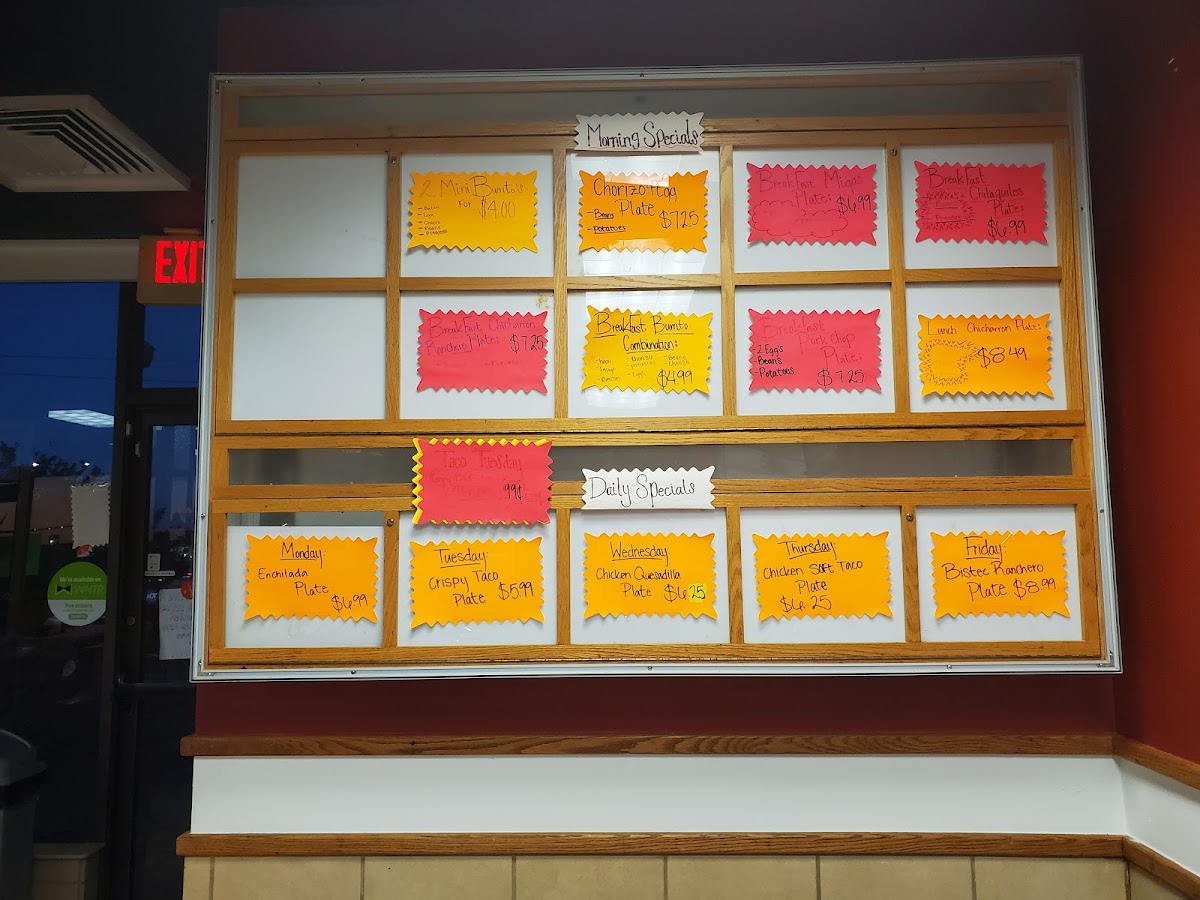 EXIT
Morning Specials
2 Mini Burritos
For $4.00
- Beans
- Potatoes
Chorizo + Egg
Plate
- Beans
- Potatoes
$7.25
Breakfast Migas
Plate:
$6.99
Breakfast
Chilaquiles
Plate:
$6.99
Breakfast Chicharron
Ranchero Plate:
$7.25
Breakfast Burrito
Combination:
$4.99
Breakfast
Pork chop
Plate:
- 2 Egg's
Beans
- Potatoes
$7.25
Lunch Chicharron Plate:
$8.49
Taco Tuesday
99¢
Daily Specials
Monday:
Enchilada
Plate
$6.99
Tuesday:
Crispy Taco
Plate $5.99
Wednesday
Chicken Quesadilla
Plate $6.25
Thursday
Chicken Soft Taco
Plate
$6.25
Friday:
Bistec Ranchero
Plate $8.99
We're available on